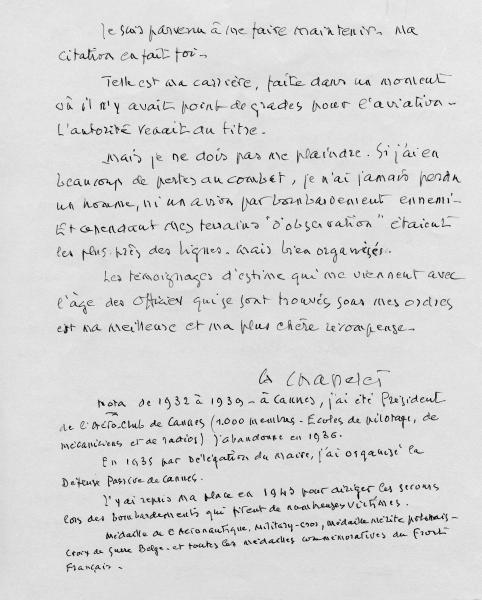 Je suis parvenu à me faire maintenir. Ma
citation en fait foi.
Telle est ma carrière, faite dans un moment
où il n'y avait point de grades pour l'aviation -
L'autorité venait du titre.
Mais je ne dois pas me plaindre. Si j'ai eu
beaucoup de pertes au combat, je n'ai jamais perdu
un homme, ni un avion par bombardement ennemi -
Et cependant mes terrains "d'observation" étaient
les plus près des lignes. Mais bien organisés.
Les témoignages d'estime qui me viennent avec
l'âge des officiers qui se sont trouvés sous mes ordres
est ma meilleure et ma plus chère récompense.
Nota de 1932 à 1939 - à Cannes, j'ai été Président
de l'Aéro-Club de Cannes (1.000 membres - Ecoles de pilotage, de
mécaniciens et de radios) J'abandonne en 1936.
En 1935 par délégation du maire, j'ai organisé la
Défense Passive de Cannes.
J'y ai repris ma place en 1943 pour diriger les secours
lors des bombardements qui firent de nombreuses victimes.
Médaille de l'Aéronautique, Military-Cros, médaille mérite polonais -
Croix de Guerre Belge. et toutes les médailles commémoratives du Front
Français.